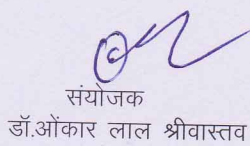 संयोजक
डॉ.ओंकार लाल श्रीवास्तव